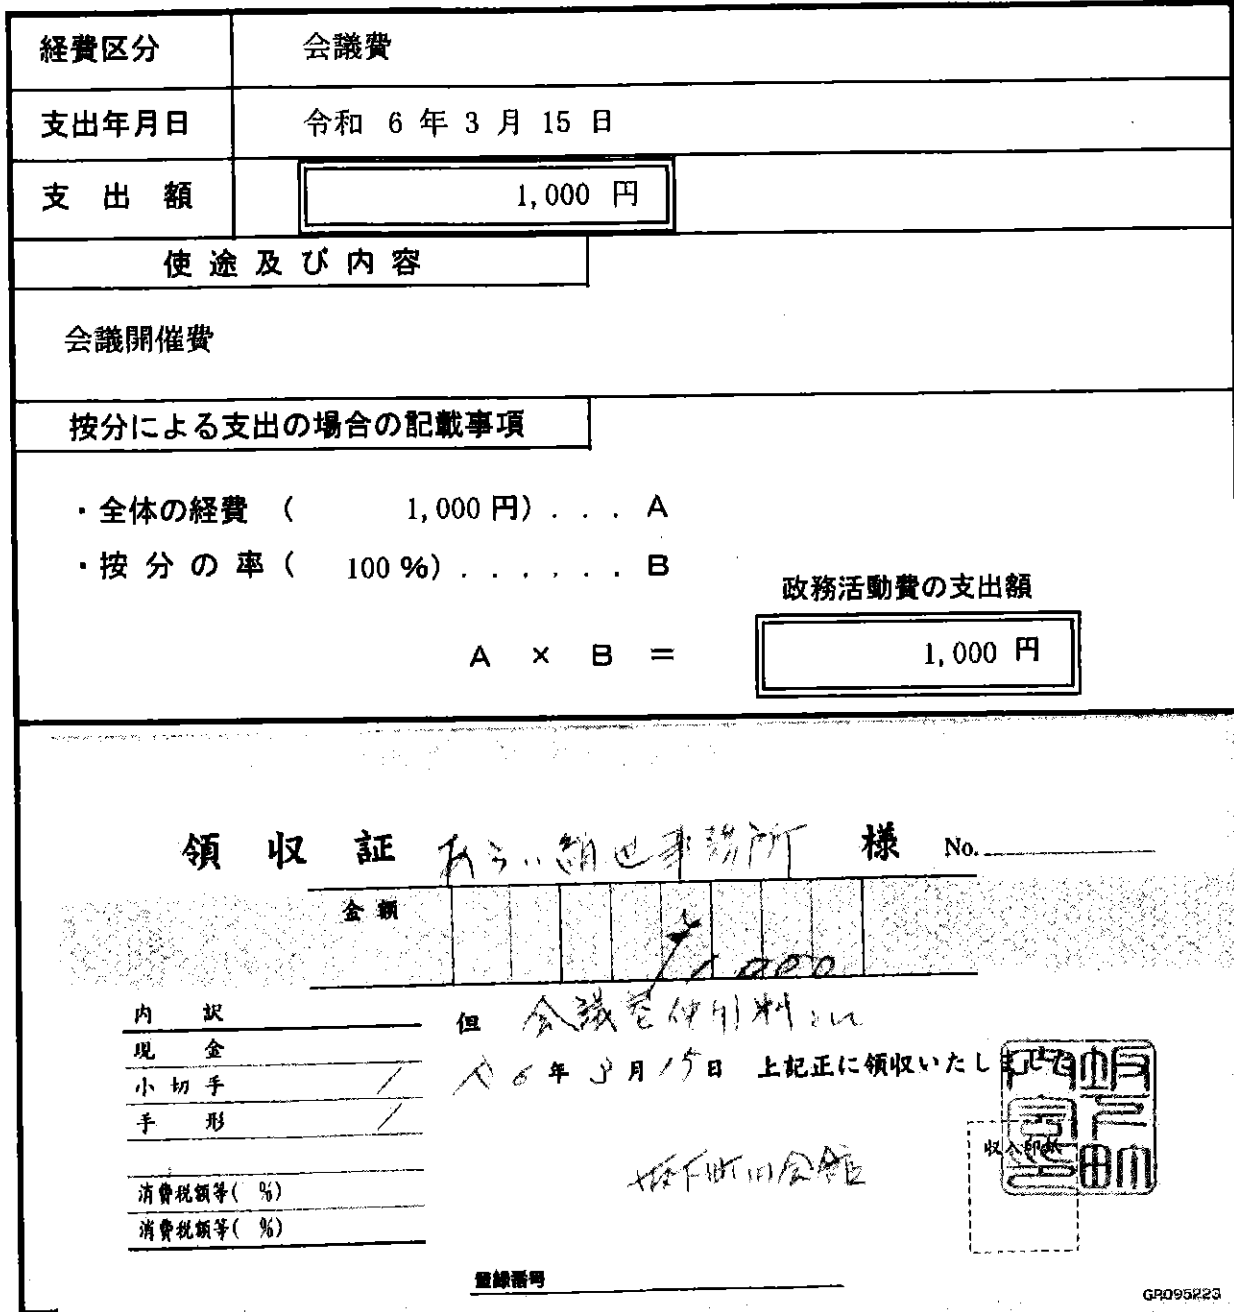 経費区分 会議費
支出年月日 令和 6 年 3 月 15 日
支出額 1,000 円
使途及び内容
会議開催費
按分による支出の場合の記載事項
・全体の経費 ( 1,000 円) . . . A
・按分の率 ( 100 %) . . . . . . B
政務活動費の支出額
A × B = 1,000 円
領収証 あらい絹世事務所 様 No.
金額 1,000
内訳 但 会議室使用料として
現金
R6年3月15日 上記正に領収いたしました
小切手 /
手形 /
収入印紙
坂下町内会館
消費税額等( %)
消費税額等( %)
登録番号
GR095223